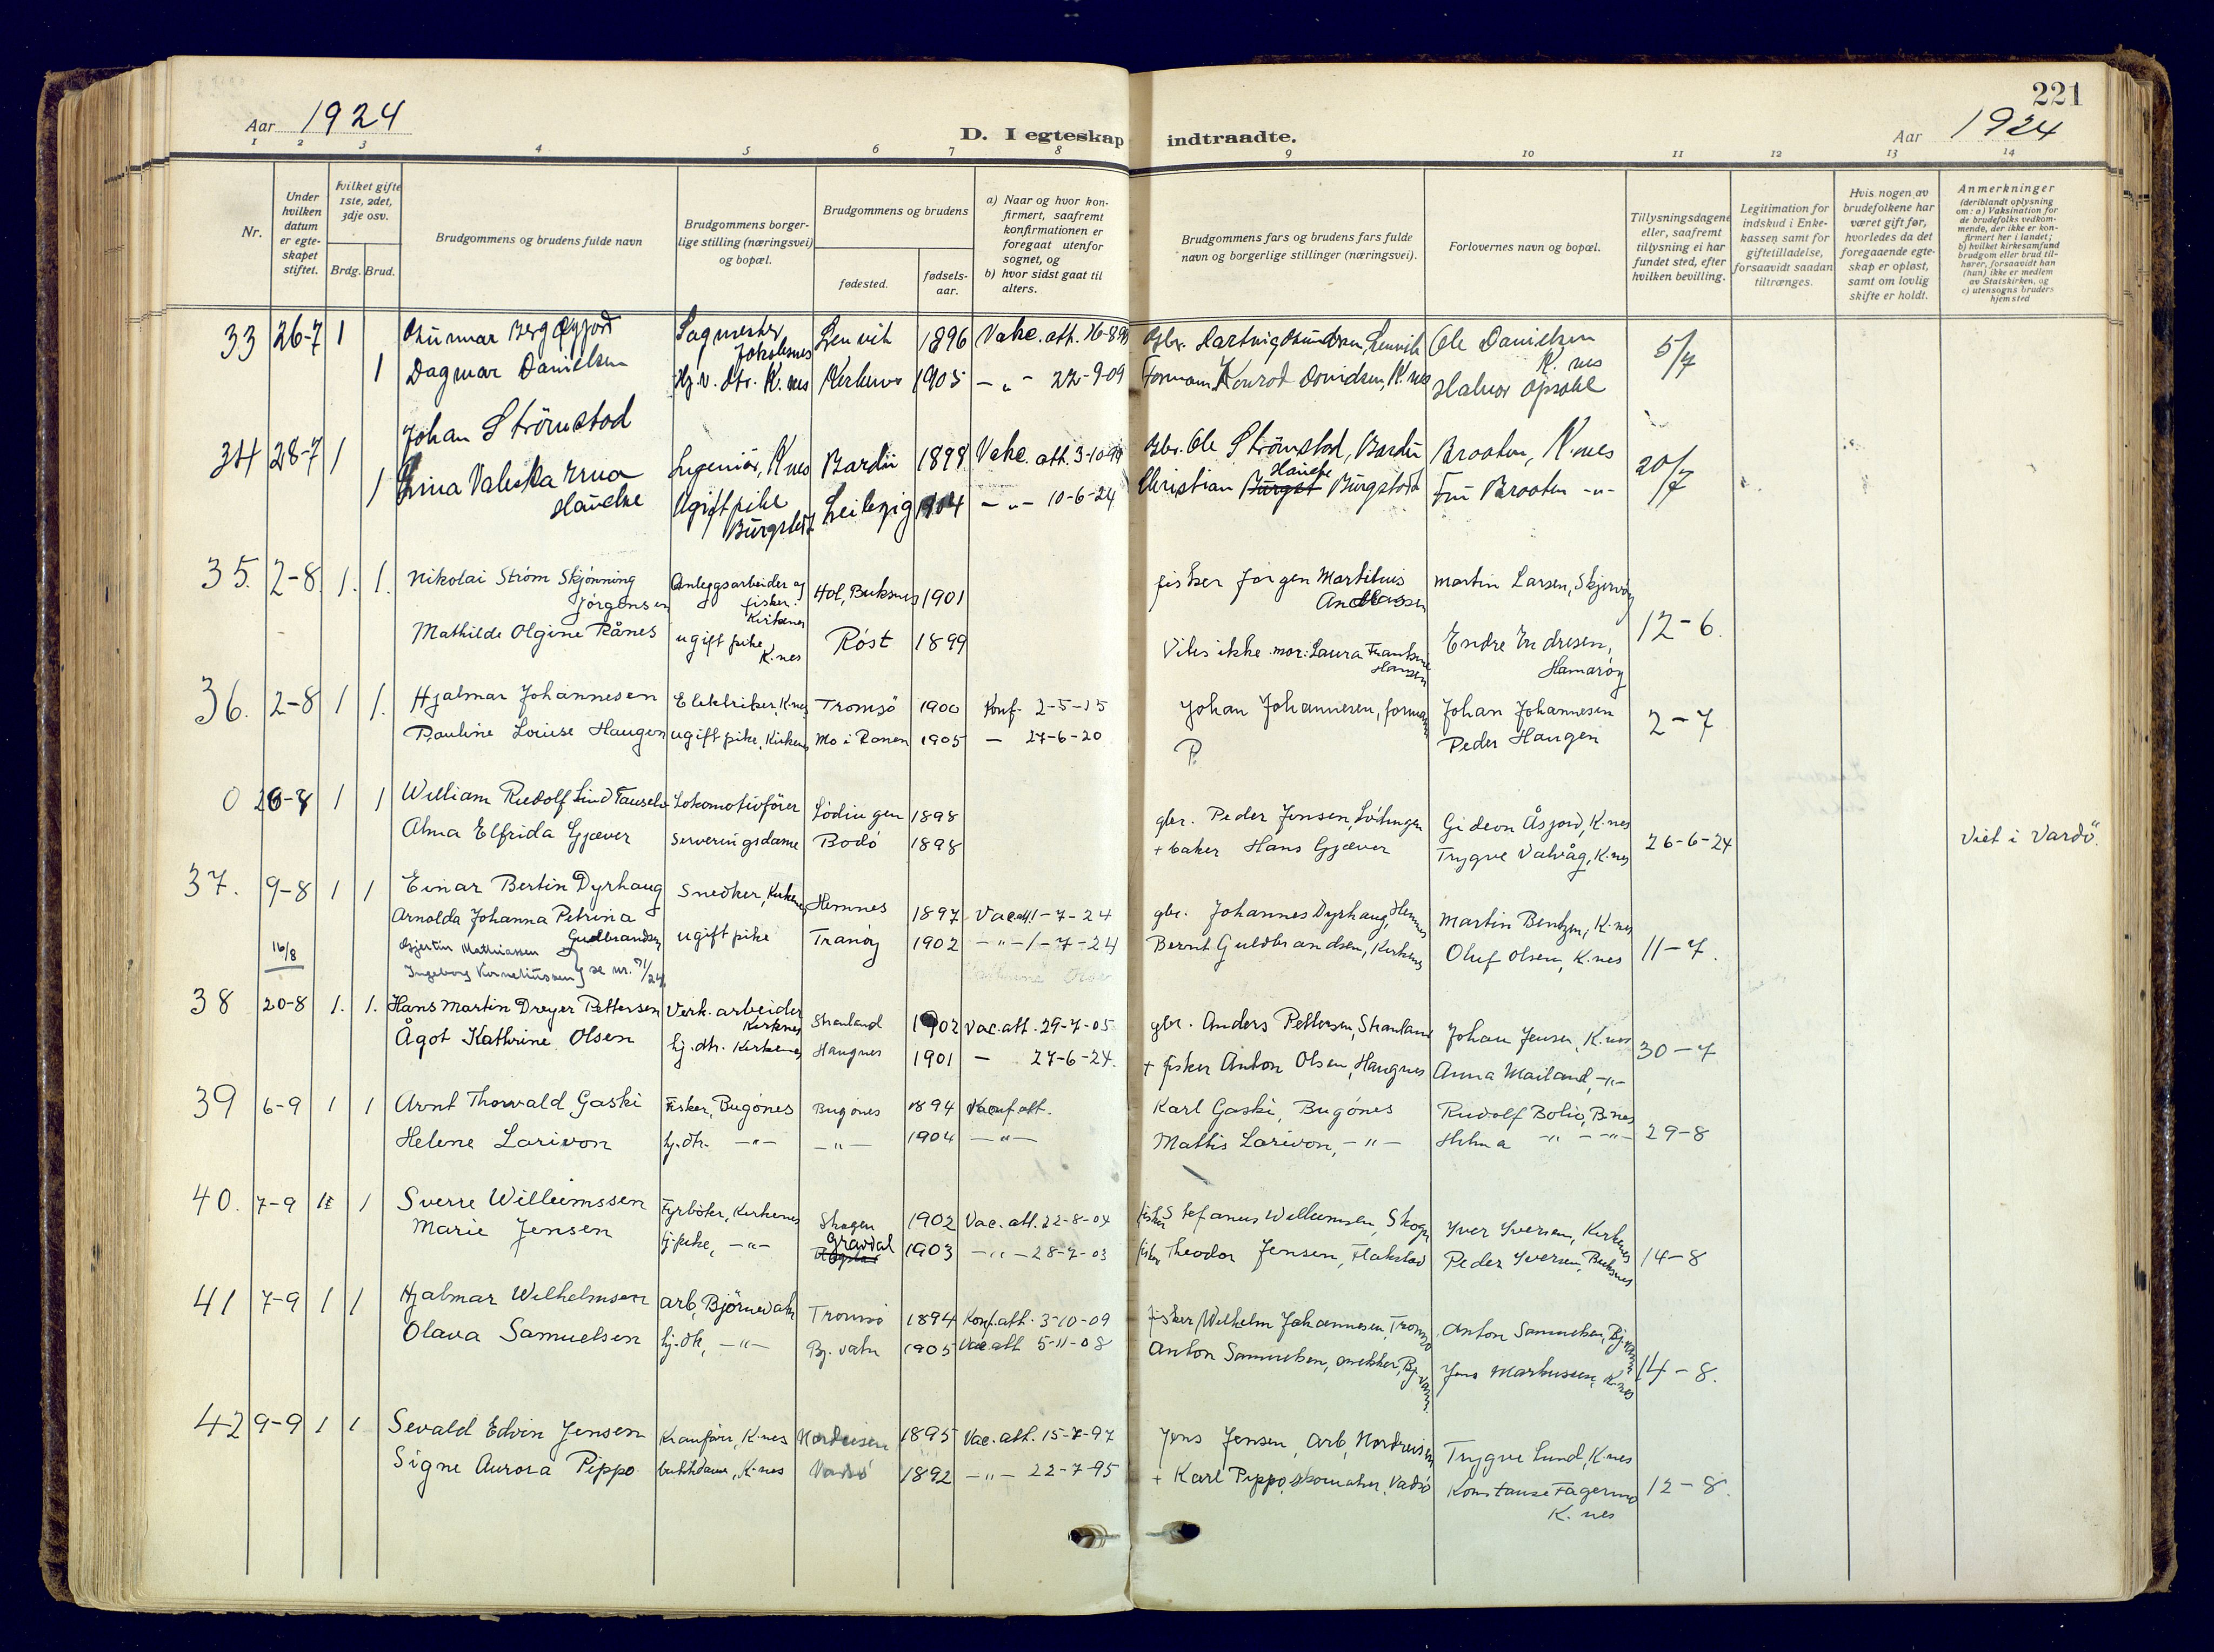 221
Aar 1924
D. I egteskap indtraadte.
Aar 1924
1 2 3 4 5 6 7 8 9 10 11 12 13 14
Nr.
Under hvilken datum er egte-skapet stiftet.
hvilket gifte 1ste, 2det, 3dje osv.
Brdg. Brud.
Brudgommens og brudens fulde navn
Brudgommens borger-lige stilling (næringsvei) og bopæl.
Brudgommens og brudens
fødested.
fødsels-aar.
a) Naar og hvor kon-firmert, saafremt konfirmationen er foregaat utenfor sognet, og
b) hvor sidst gaat til alters.
Brudgommens fars og brudens fars fulde navn og borgerlige stillinger (næringsvei).
Forlovernes navn og bopæl.
Tillysningsdagene eller, saafremt tillysning ei har fundet sted, efter hvilken bevilling.
Legitimation for indskud i Enke-kassen samt for giftetilladelse, forsaavidt saadan tiltrænges.
Hvis nogen av brudefolkene har været gift før, hvorledes da det foregaaende egte-skap er opløst, samt om lovlig skifte er holdt.
Anmerkninger (deriblandt oplysning om: a) Vaksination for de brudefolks vedkom-mende, der ikke er kon-firmert her i landet; b) hvilket kirkesamfund brudgom eller brud til-hører, forsaavidt han (hun) ikke er medlem av Statskirken, og c) utensogns bruders hjemsted
33 26-7 1 Gunnar Berg Sagmester Jakobsnes Lenvik 1896 Vakc. att. Gbr. Hartvig Lenvik Ole Danielsen K.nes 5/7
1 Dagmar Danielsen Hj.v. dtr. K.nes Kirkenes 1905 - " - 22-9-09 Formann K.nes Halvor Opsahl
34 28-7 1 Johan Strömstad Ingeniör, K nes Bardü 1898 Vakc. att. Gbr. Ole Strömstad, Bardü Brooten, K.nes 20/7
1 Valeska Erna Haucke Ugift pike Bürgstedt Leibzig 1904 - " - 10-6-24 Christian Haucke Bürgstedt Frü Brooten - " -
35. 2-8. 1. 1. Nikolai Strøm Skjønning Jørgensen Anleggsarbeider og fisker. Kirkenes Hol, Buksnes 1901 fisker Jørgen Martinus Andreassen Martin Larsen, Skjervøy 12-6.
Mathilde Olgine Rånes ugift pike, K.nes Røst 1899 Vites ikke. mor: Laura Frantsine Hansen Endre Endresen, Hamarøy
36. 2-8 1 1. Hjalmar Johannesen Elektriker, K.nes Tromsö 1900 Konf. 2-5-15 Johan Johannesen, formann Johan Johannesen 2-7
Pauline Louise Haugen ugift pike, Kirkenes Mo i Ranen 1905 - 27-6-20 P. Peder Haugen
0 1 1 William Rudolf Lind Lokomotivfører Lödingen 1898 gbr. Peder Jensen, Lödingen Gideon Åsjord, K.nes 26-6-24 Viet i Vardö.
Alma Elfrida Gjæver Serveringsdame Bodö 1898 + baker Hans Gjæver Trygve Valvåg, K.nes
37. 9-8 1 1 Einar Bertin Dyrhaug Snedker, Kirkenes Hemnes 1897 Vac.att. 1-7-24 gbr. Johannes Dyrhaug, Hemnes Martin Bentzen, K.nes 11-7.
Arnolda Johanna Petrina Gudbrandsen ugift pike Tranöy 1902 - " - 1-7-24 Bernt Guldbrandsen, Kirkenes Oluf Olsen, K.nes
16/8 Gjertin Mathiassen
Ingeborg Korneliussen } se nr. 31/24
38 20-8 1. 1. Hans Martin Dreyer Pettersen Verk. arbeider Kirknes Stranland 1902 Vac. att. 29-7-05 gbr. Anders Pettersen, Stranland Johan Jensen, K.nes 30-7
Ågot Kathrine Olsen hj. dtr. Kirkenes Haugnes 1901 - 27-6-24. + fisker Anton Olsen, Haugnes Anna Mailand, - " -
39 6-9 1 1 Arnt Thorvald Gaski Fisker, Bugönes Bugönes 1894 Karl Gaski, Bugönes Rudolf Bolio, B.nes 29-8
Helene Larivon hj. dtr. - " - - " - 1904 - " - Mattis Larivon, - " - Helma - " - - " -
40. 7-9 1 Sverre Willumssen Fyrböter, Kirkenes Skogen 1902 Vac. att. 22-8-04 fisker Stefanus Willumsen, Skogn Yver Yversen, Kirkenes 14-8
Marie Jensen hj.pike, - " - Gravdal 1903 - " - 28-7-03 fisker Theodor Jensen, Flakstad Peder Yversen, Buksnes
41 7-9 1 1 Hjalmar Wilhelmsen arb, Björnevatn Tromsö 1894 Konf. att. 3-10-09 fisker Wilhelm Johannesen, Tromsö Anton Samuelsen, Bj.vatn 14-8.
Olava Samuelsen hj. dtr, - " - Bj. vatn 1905 Vac att 5-11-08 Anton Samuelsen, snekker, Bj. vatn. Jens Markussen, K.nes
42 9-9 1 1 Sevald Edvin Jensen Kranfører, K.nes Nordreisen 1895 Vac. att. 15-7-97 Jens Jensen, arb, Nordreisen Trygve Lund, K.nes 12-8.
Signe Aurora Pippo butikdame, K.nes Vadsö 1892 - " - 22-7-95 + Karl Pippo, skomaker, Vadsö Konstanse Fagermo K.nes